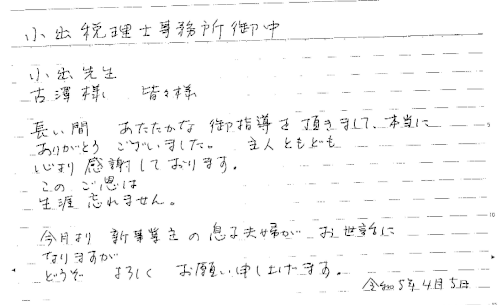 小出税理士事務所御中
小出先生
古澤様 皆々様
長い間 あたたかな 御指導を 頂きまして、本当に
ありがとう ございました。 主人ともども
心より 感謝しております。
この ご恩は
生涯 忘れません。
今月より 新事業主の 息子夫婦が お世話に
なりますが
どうぞ よろしく お願い申し上げます。
令和5年4月5日